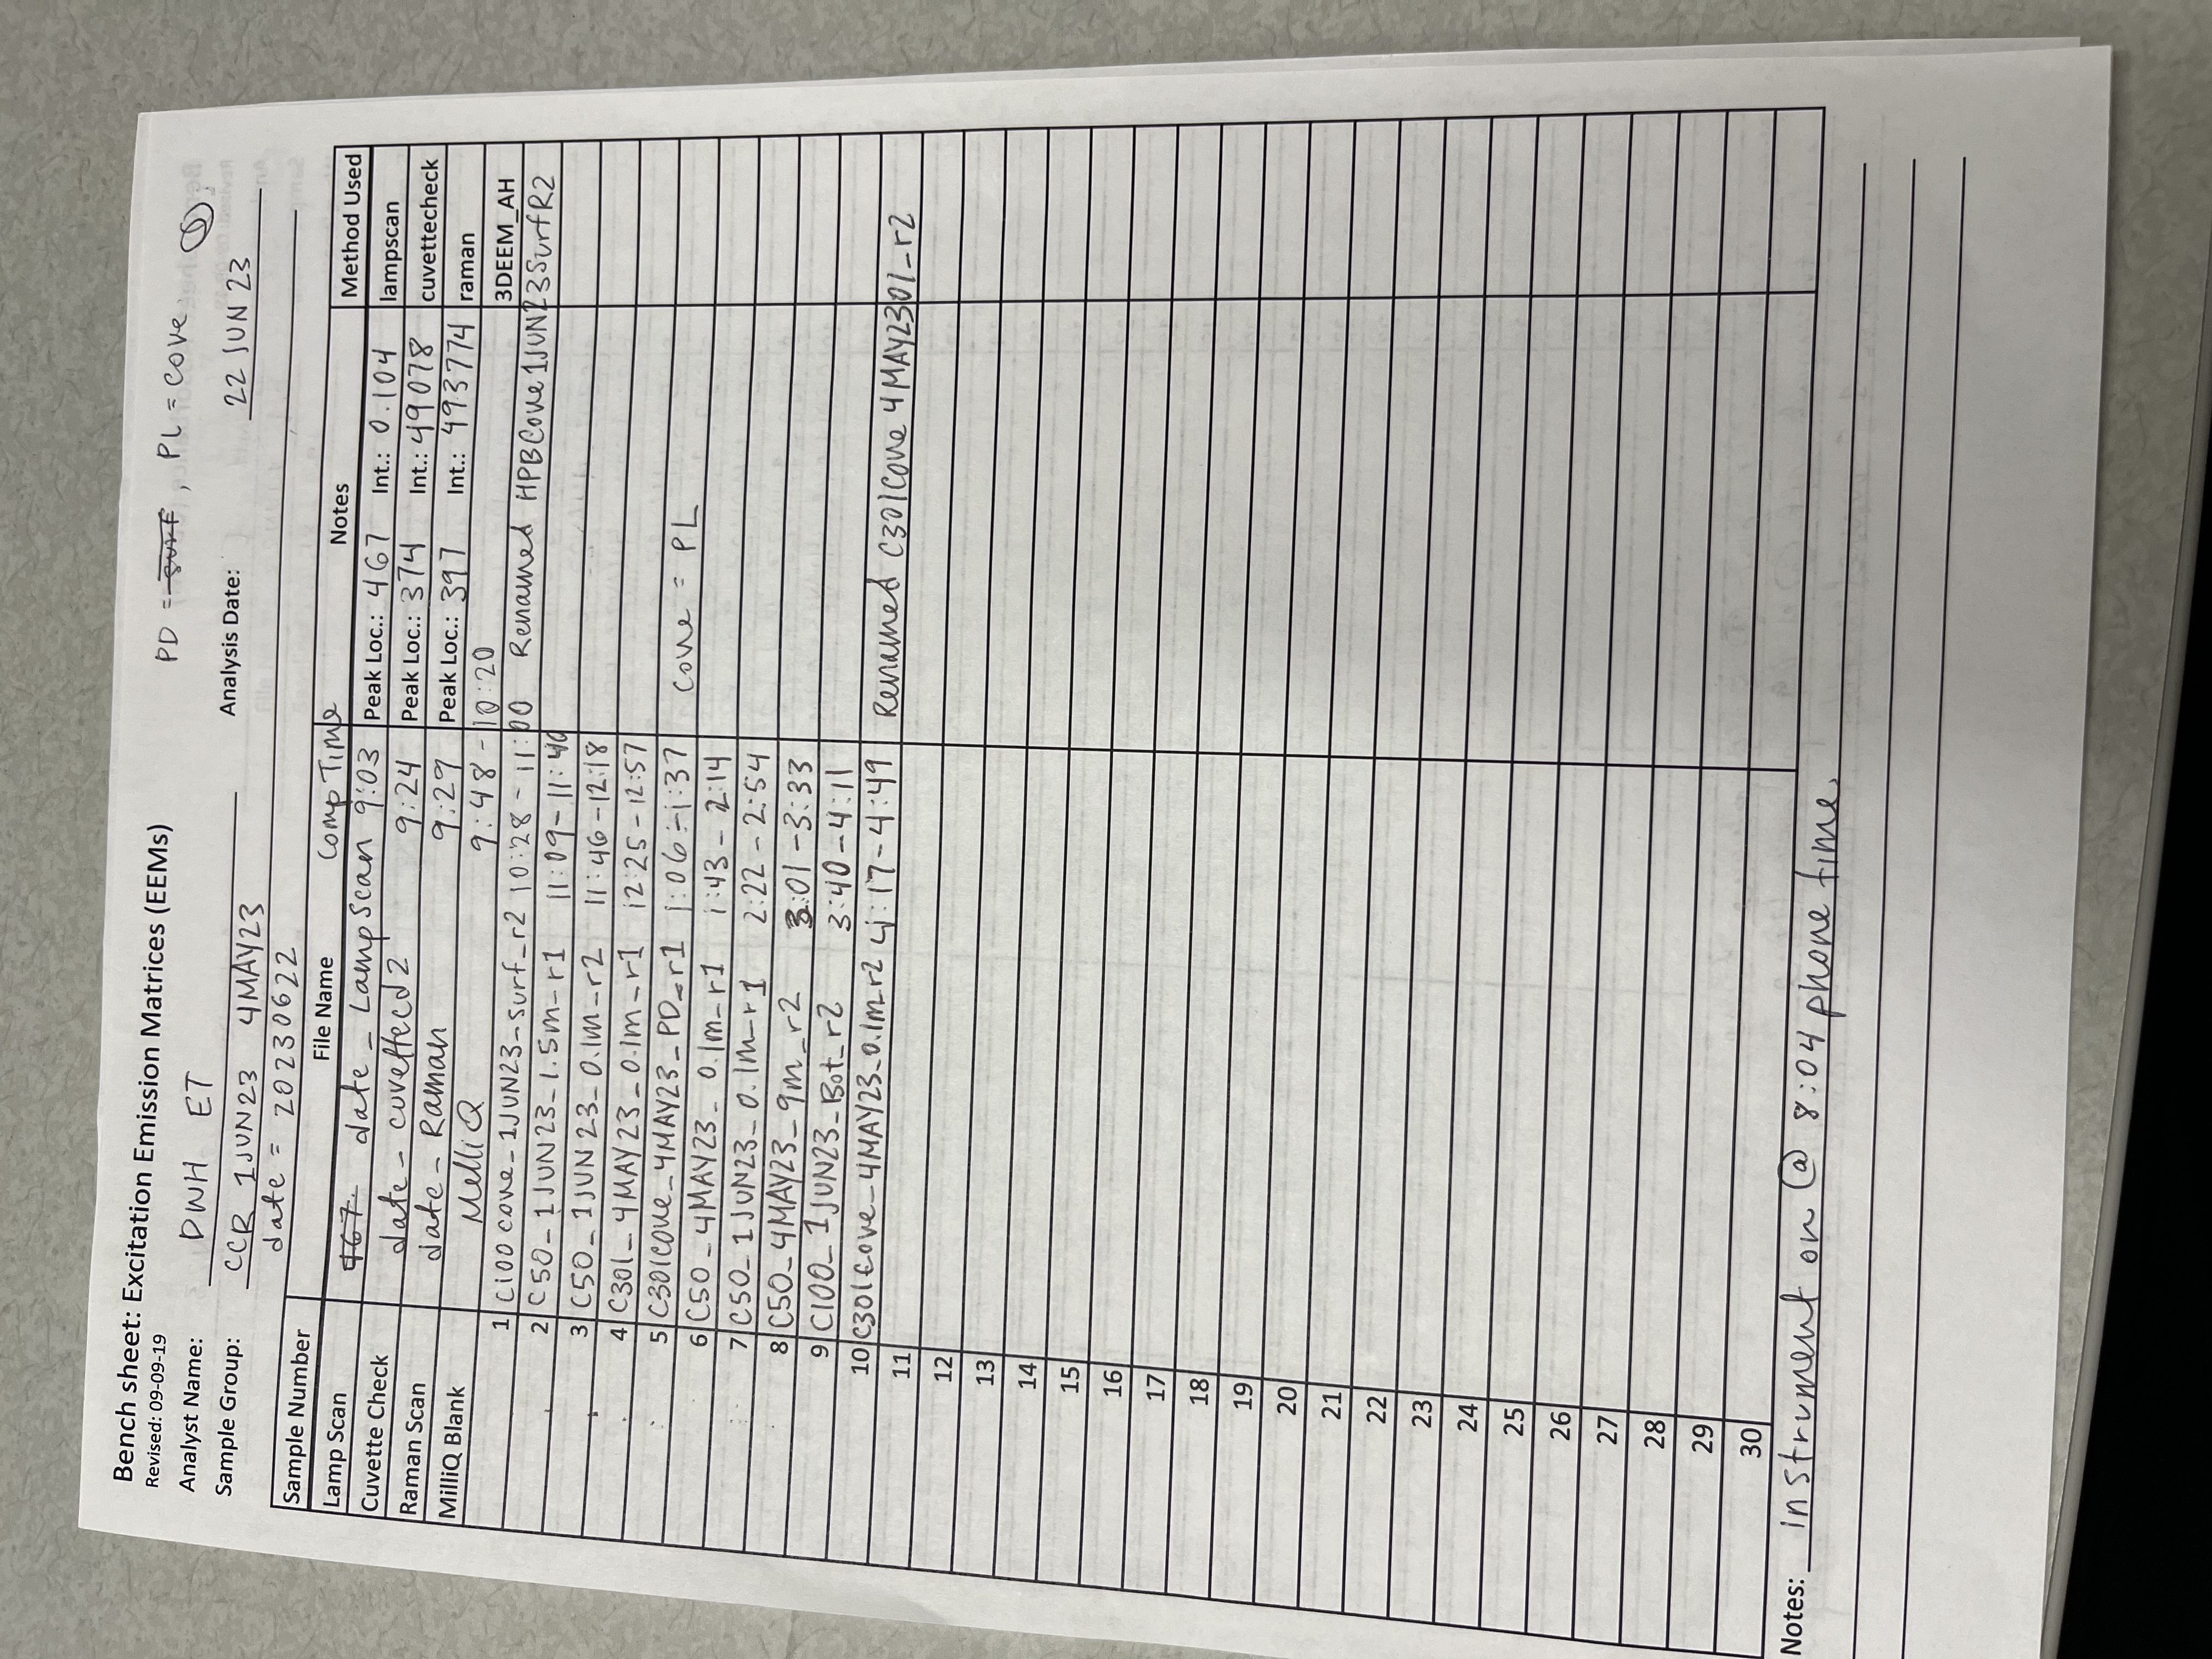 Bench sheet: Excitation Emission Matrices (EEMs)
Revised: 09-09-19
PD = surf, PL = cove
Analyst Name: DWH ET
Sample Group: CCR 1JUN23 4MAY23
Analysis Date: 22 JUN 23
date = 20230622
Sample Number File Name Comp Time Notes Method Used
Lamp Scan 467. date_LampScan 9:03 Peak Loc.: 467 Int.: 0.104 lampscan
Cuvette Check date_cuvettecd2 9:24 Peak Loc.: 374 Int.: 49078 cuvettecheck
Raman Scan date_Raman 9:29 Peak Loc.: 397 Int.: 493774 raman
MilliQ Blank MelliQ 9:48 - 10:20 3DEEM_AH
1 C100 cove_1JUN23_surf_r2 10:28 - 11:00 Renamed HPBCove1JUN23SurfR2
2 C50_1JUN23_1.5m_r1 11:09 - 11:40
3 C50_1JUN23_0.1m_r2 11:46 - 12:18
4 C301_4MAY23_0.1m_r1 12:25 - 12:57
5 C301cove_4MAY23_PD_r1 1:06 - 1:37 cove = PL
6 C50_4MAY23_0.1m_r1 1:43 - 2:14
7 C50_1JUN23_0.1m_r1 2:22 - 2:54
8 C50_4MAY23_9m_r2 3:01 - 3:33
9 C100_1JUN23_Bot_r2 3:40 - 4:11
10 C301cove_4MAY23_0.1m_r2 4:17 - 4:49 Renamed C301Cove4MAY2301_r2
11
12
13
14
15
16
17
18
19
20
21
22
23
24
25
26
27
28
29
30
Notes: instrument on @ 8:04 phone time.